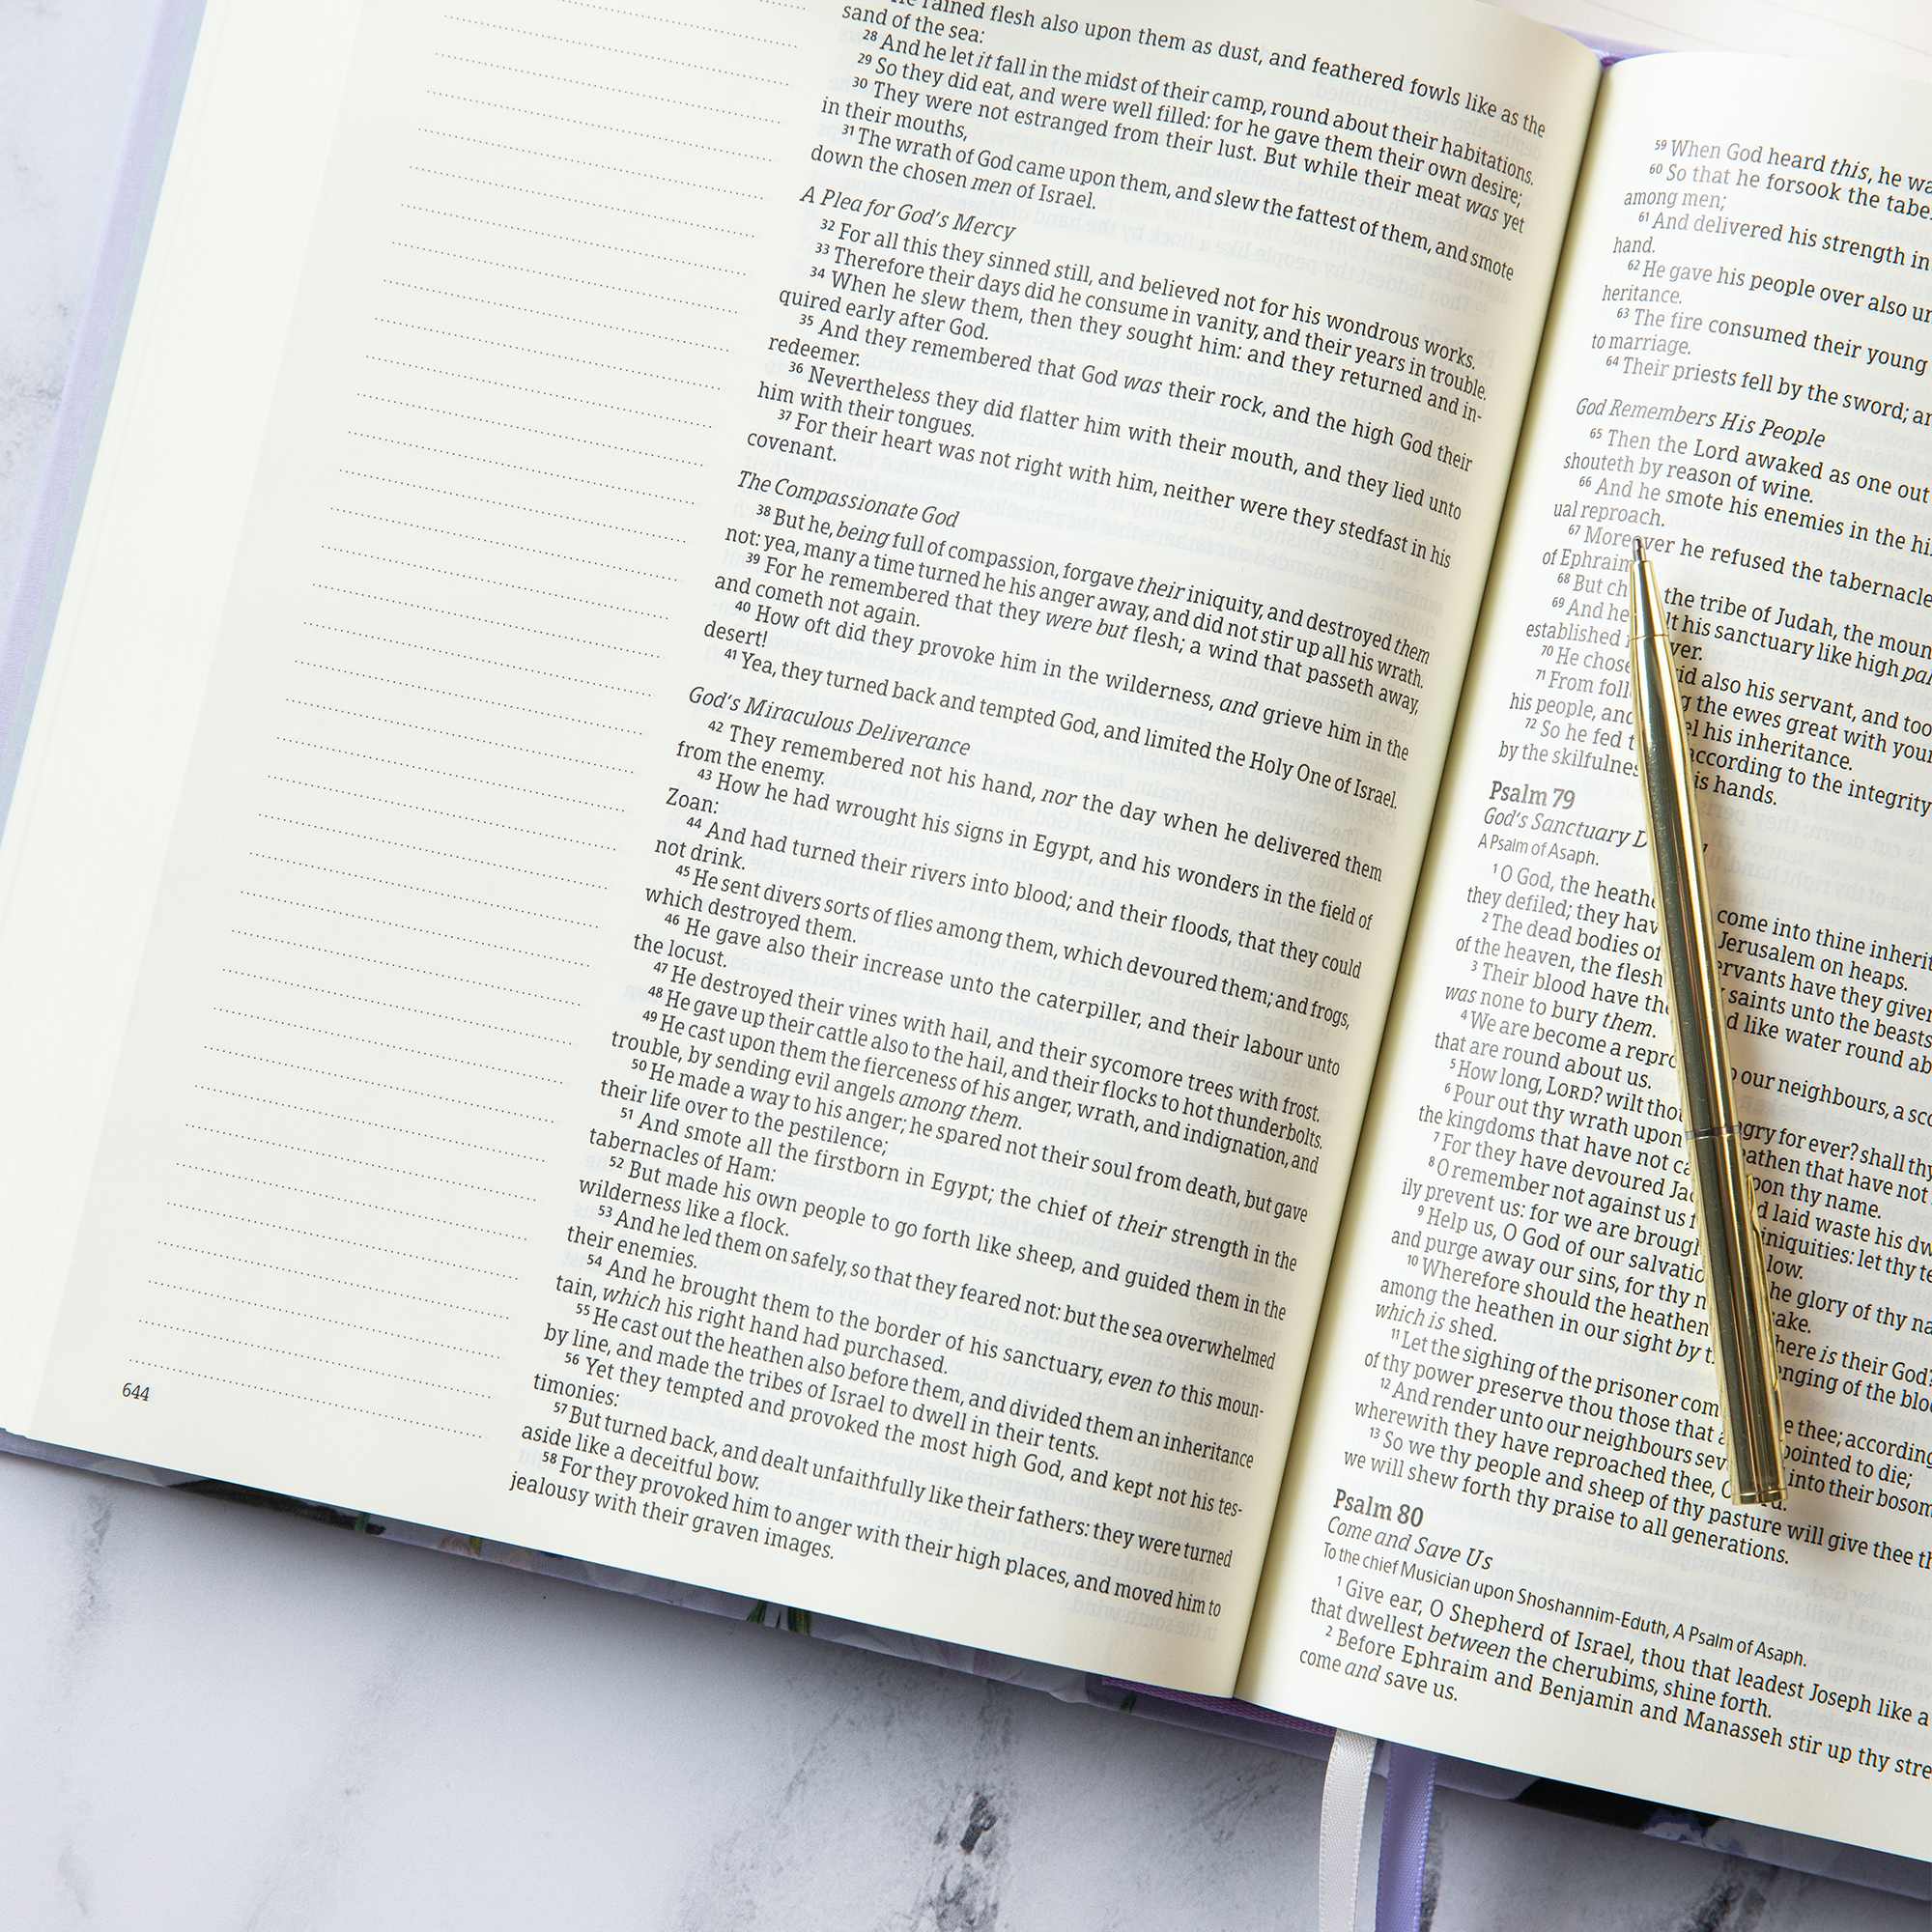 rained flesh also upon them as dust, and feathered fowls like as the
sand of the sea:
28 And he let it fall in the midst of their camp, round about their habitations.
29 So they did eat, and were well filled: for he gave them their own desire;
30 They were not estranged from their lust. But while their meat was yet
in their mouths,
31 The wrath of God came upon them, and slew the fattest of them, and smote
down the chosen men of Israel.
A Plea for God's Mercy
32 For all this they sinned still, and believed not for his wondrous works.
33 Therefore their days did he consume in vanity, and their years in trouble.
34 When he slew them, then they sought him: and they returned and in-
quired early after God.
35 And they remembered that God was their rock, and the high God their
redeemer.
36 Nevertheless they did flatter him with their mouth, and they lied unto
him with their tongues.
37 For their heart was not right with him, neither were they stedfast in his
covenant.
The Compassionate God
38 But he, being full of compassion, forgave their iniquity, and destroyed them
not: yea, many a time turned he his anger away, and did not stir up all his wrath.
39 For he remembered that they were but flesh; a wind that passeth away,
and cometh not again.
40 How oft did they provoke him in the wilderness, and grieve him in the
desert!
41 Yea, they turned back and tempted God, and limited the Holy One of Israel.
God's Miraculous Deliverance
42 They remembered not his hand, nor the day when he delivered them
from the enemy.
43 How he had wrought his signs in Egypt, and his wonders in the field of
Zoan:
44 And had turned their rivers into blood; and their floods, that they could
not drink.
45 He sent divers sorts of flies among them, which devoured them; and frogs,
which destroyed them.
46 He gave also their increase unto the caterpiller, and their labour unto
the locust.
47 He destroyed their vines with hail, and their sycomore trees with frost.
48 He gave up their cattle also to the hail, and their flocks to hot thunderbolts.
49 He cast upon them the fierceness of his anger, wrath, and indignation, and
trouble, by sending evil angels among them.
50 He made a way to his anger; he spared not their soul from death, but gave
their life over to the pestilence;
51 And smote all the firstborn in Egypt; the chief of their strength in the
tabernacles of Ham:
52 But made his own people to go forth like sheep, and guided them in the
wilderness like a flock.
53 And he led them on safely, so that they feared not: but the sea overwhelmed
their enemies.
54 And he brought them to the border of his sanctuary, even to this moun-
tain, which his right hand had purchased.
55 He cast out the heathen also before them, and divided them an inheritance
by line, and made the tribes of Israel to dwell in their tents.
56 Yet they tempted and provoked the most high God, and kept not his tes-
timonies:
57 But turned back, and dealt unfaithfully like their fathers: they were turned
aside like a deceitful bow.
58 For they provoked him to anger with their high places, and moved him to
jealousy with their graven images.
644
59 When God heard this, he wa
60 So that he forsook the tabe
among men;
61 And delivered his strength in
hand.
62 He gave his people over also un
heritance.
63 The fire consumed their young
to marriage.
64 Their priests fell by the sword; an
God Remembers His People
65 Then the Lord awaked as one out
shouteth by reason of wine.
66 And he smote his enemies in the hi
ual reproach.
67 Moreover he refused the tabernacle
of Ephraim
68 But ch the tribe of Judah, the moun
69 And he lt his sanctuary like high pal
established ver.
70 He chose id also his servant, and too
71 From foll g the ewes great with youn
his people, and el his inheritance.
72 So he fed t according to the integrity
by the skilfulnes is hands.
Psalm 79
God's Sanctuary D
A Psalm of Asaph.
1 O God, the heathe come into thine inherit
they defiled; they hav Jerusalem on heaps.
2 The dead bodies of ervants have they given
of the heaven, the flesh saints unto the beasts
3 Their blood have the d like water round ab
was none to bury them.
4 We are become a repro o our neighbours, a sco
that are round about us.
5 How long, LORD? wilt thou ngry for ever? shall thy
6 Pour out thy wrath upon eathen that have not
the kingdoms that have not ca pon thy name.
7 For they have devoured Jac d laid waste his dw
8 O remember not against us f iniquities: let thy te
ily prevent us: for we are brough low.
9 Help us, O God of our salvatio he glory of thy na
and purge away our sins, for thy n ake.
10 Wherefore should the heathen here is their God?
among the heathen in our sight by t enging of the bloo
which is shed.
11 Let the sighing of the prisoner com e thee; according
of thy power preserve thou those that a pointed to die;
12 And render unto our neighbours sev into their bosom
wherewith they have reproached thee, O rd.
13 So we thy people and sheep of thy pasture will give thee th
we will shew forth thy praise to all generations.
Psalm 80
Come and Save Us
To the chief Musician upon Shoshannim-Eduth, A Psalm of Asaph.
1 Give ear, O Shepherd of Israel, thou that leadest Joseph like a
that dwellest between the cherubims, shine forth.
2 Before Ephraim and Benjamin and Manasseh stir up thy stre
come and save us.